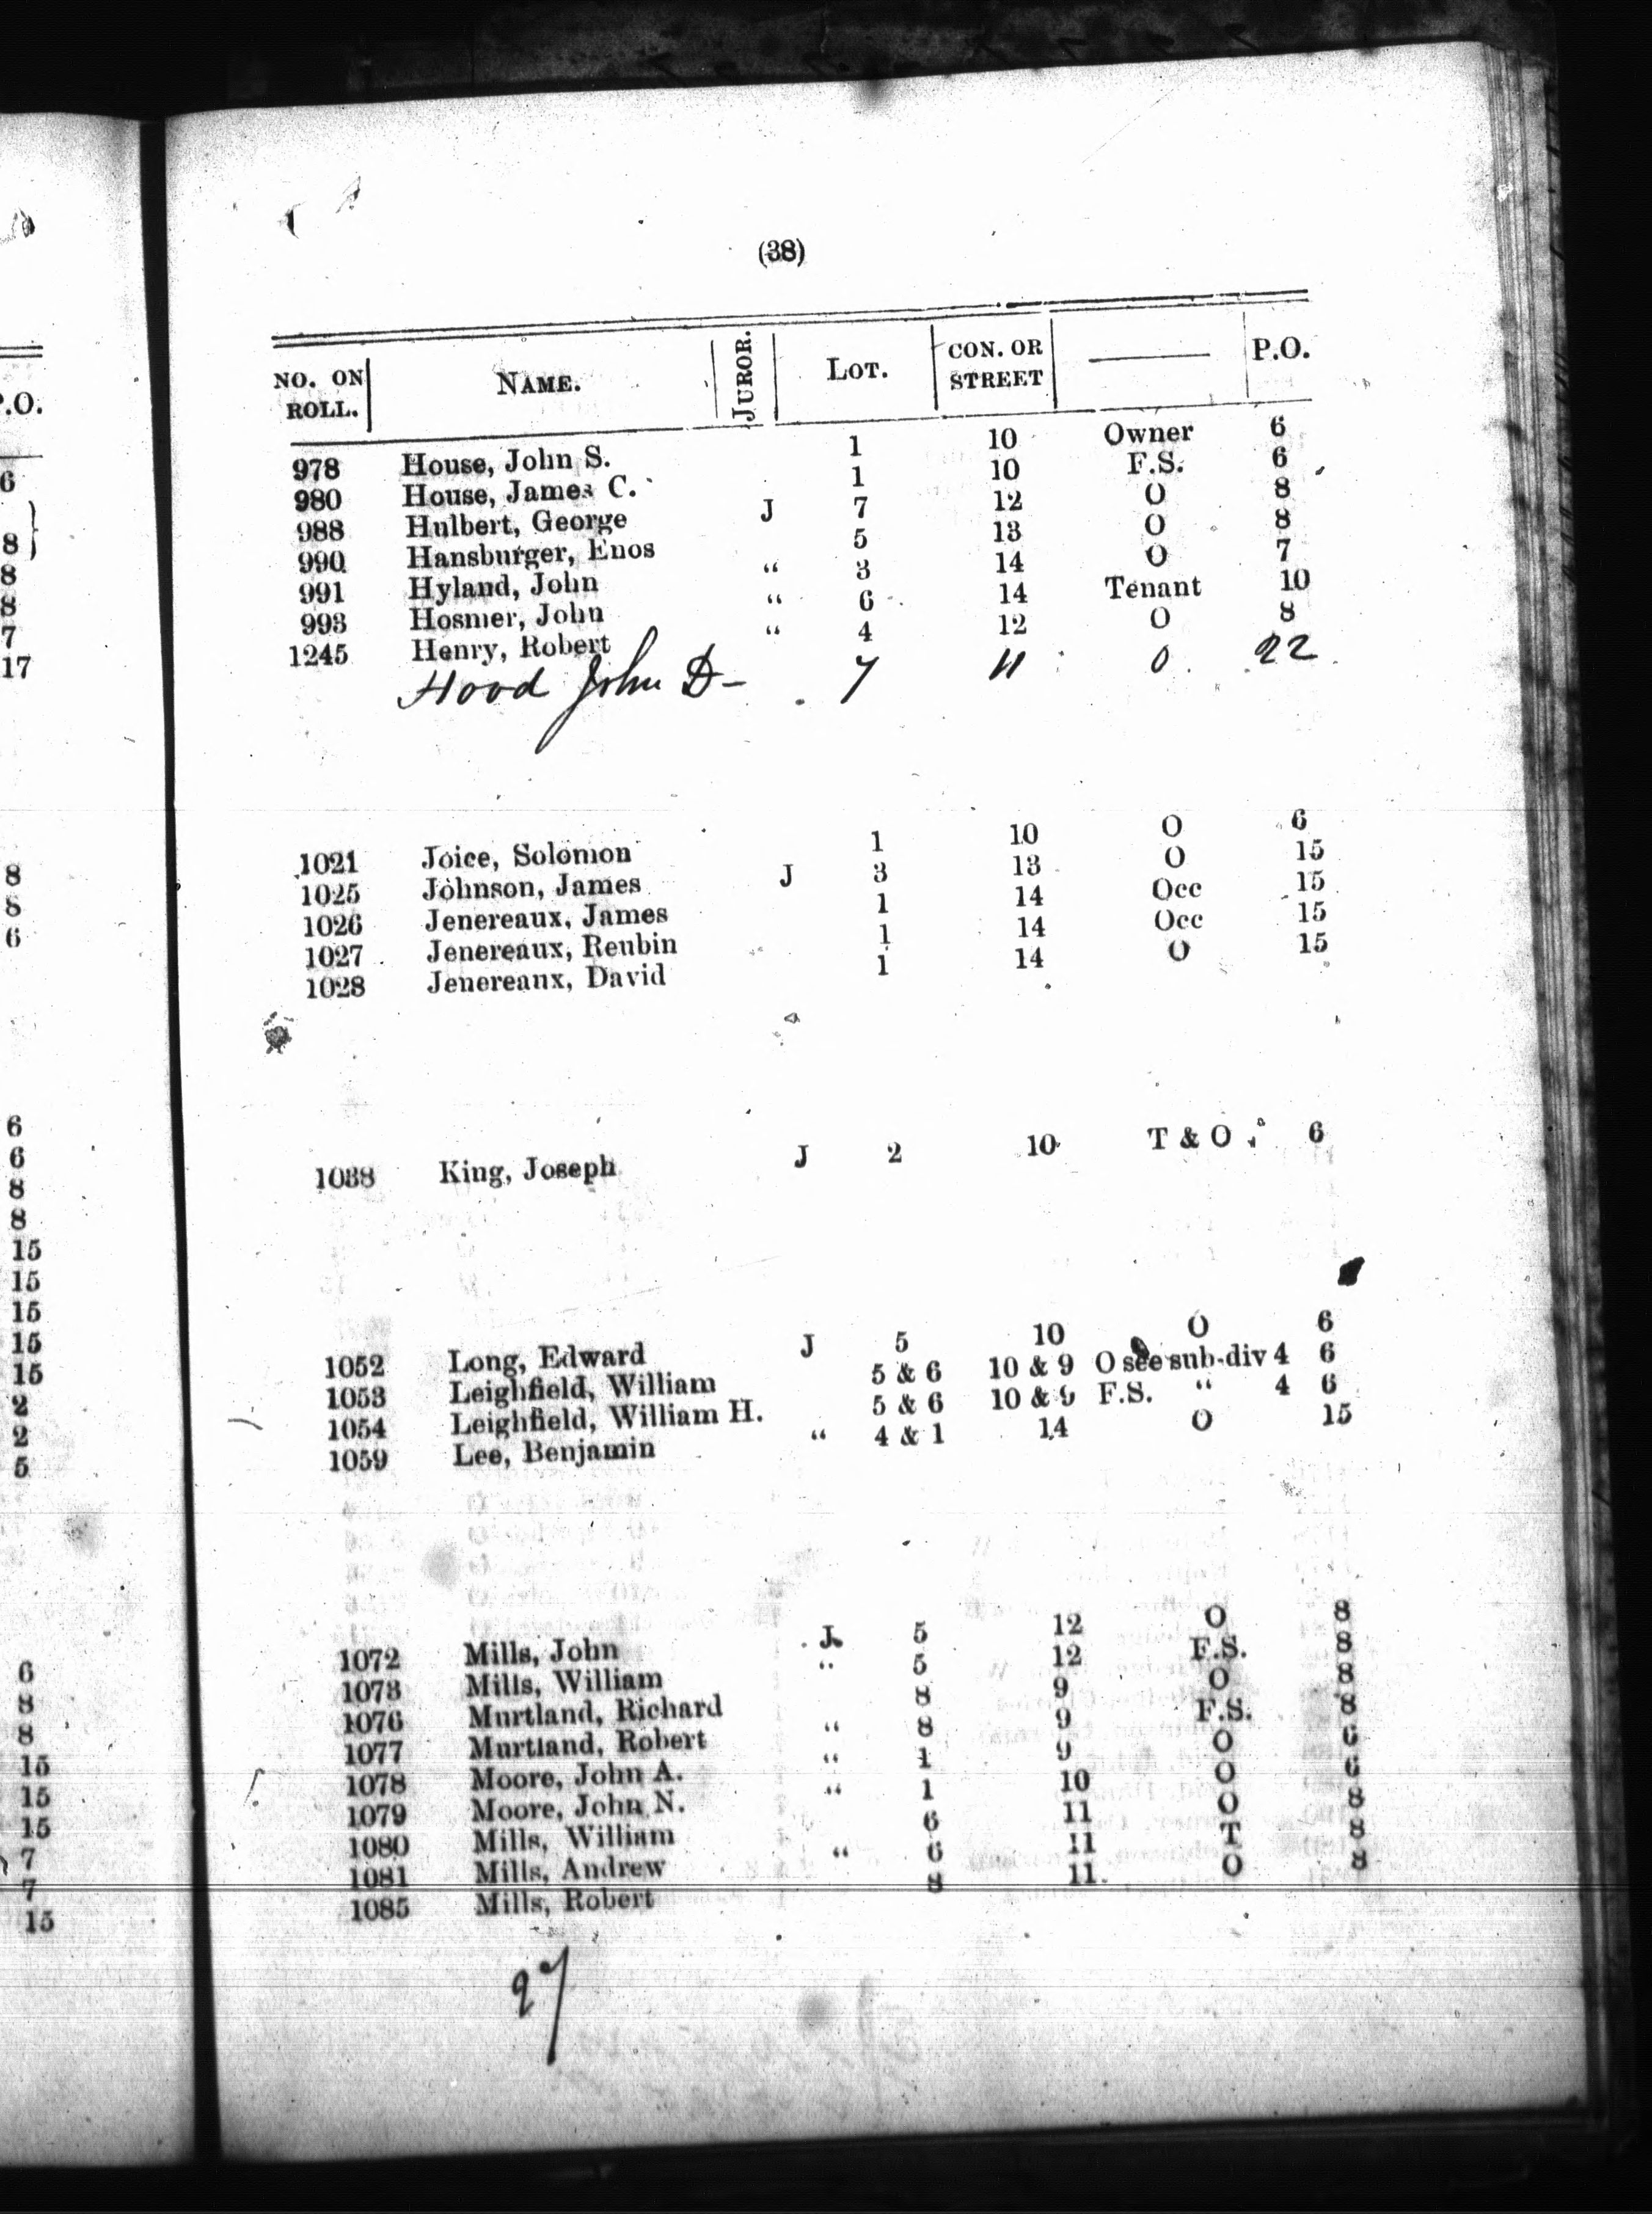 (38)
NO. ON ROLL. NAME. JUROR. LOT. CON. OR STREET P.O.
978 House, John S. 1 10 Owner 6
980 House, James C. 1 10 F.S. 6
988 Hulbert, George J 7 12 O 8
990 Hansburger, Enos 5 13 O 8
991 Hyland, John “ 3 14 O 7
993 Hosmer, John “ 6 14 Tenant 10
1245 Henry, Robert “ 4 12 O 8
Hood John D- 7 11 O 22
1021 Joice, Solomon 1 10 O 6
1025 Johnson, James J 3 13 O 15
1026 Jenereaux, James 1 14 Occ 15
1027 Jenereaux, Reubin 1 14 Occ 15
1028 Jenereaux, David 1 14 O 15
1038 King, Joseph J 2 10 T & O 6
1052 Long, Edward J 5 10 O 6
1053 Leighfield, William 5 & 6 10 & 9 O see sub-div 4 6
1054 Leighfield, William H. 5 & 6 10 & 9 F.S. “ 4 6
1059 Lee, Benjamin “ 4 & 1 14 O 15
1072 Mills, John J 5 12 O 8
1073 Mills, William “ 5 12 F.S. 8
1076 Murtland, Richard 8 9 O 8
1077 Murtland, Robert “ 8 9 F.S. 8
1078 Moore, John A. “ 1 9 O 6
1079 Moore, John N. “ 1 10 O 6
1080 Mills, William 6 11 O 8
1081 Mills, Andrew “ 6 11 T 8
1085 Mills, Robert 8 11 O 8
27
P.O.
6
8
8
8
7
17
8
8
6
6
6
8
8
15
15
15
15
15
2
2
5
6
8
8
15
15
15
7
7
15